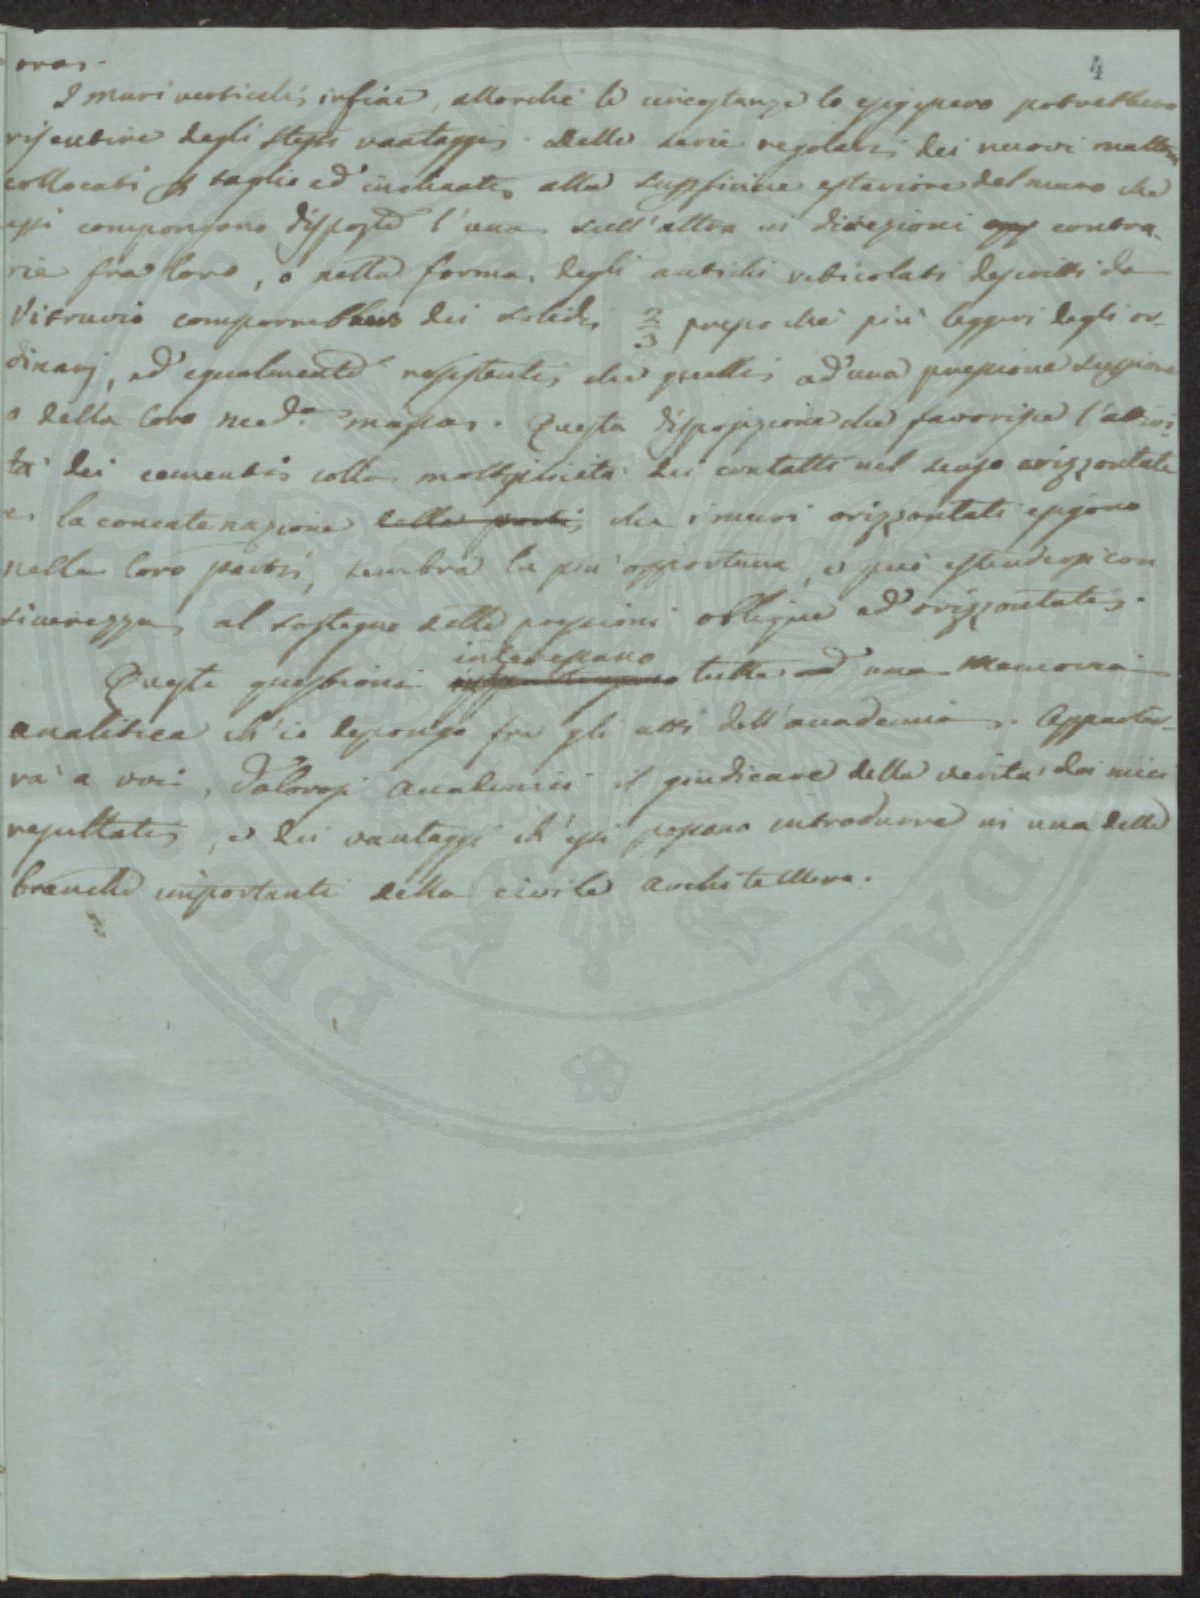 4
oras.
I muri verticali, infine, allorchè le circostanze lo esigessero potrebbero
risentire degli stessi vantaggi. Delle serie regolari dei nuovi mattoni
collocati a taglio ed' inclinate alla superficie esteriore del muro che
essi compongono disposte l'una sull'altra in direzioni opp contra
rie fra loro, o nella forma degli antichi reticolati descritti da
Vitruvio comporrebbero dei solidi 2/3 presso che più leggeri degli or-
dinarj, ed' egualmente resistenti che quelli ad'una pressione superiore
o della loro med.a massa. Questa disposizione che favorisce l'attivi-
tà dei cementi colla moltiplicità dei contatti nel senso orizzontale
e la concatenazione delle parti che i muri orizzontali esigono
nelle loro parti, sembra la più opportuna, e può estendersi con
sicurezza al sostegno delle pressioni oblique ed' orizzontali.
interessano
Queste questioni tutte ad una Memoria
analitica ch'io depongo fra gli atti dell'accademia. Apparter-
rà a voi, Valorosi Accademici il giudicare della verità dei miei
resultati, e dei vantaggi ch'essi possano introdurre in una delle
branche importanti della civile Architettura.
PRO
DAE